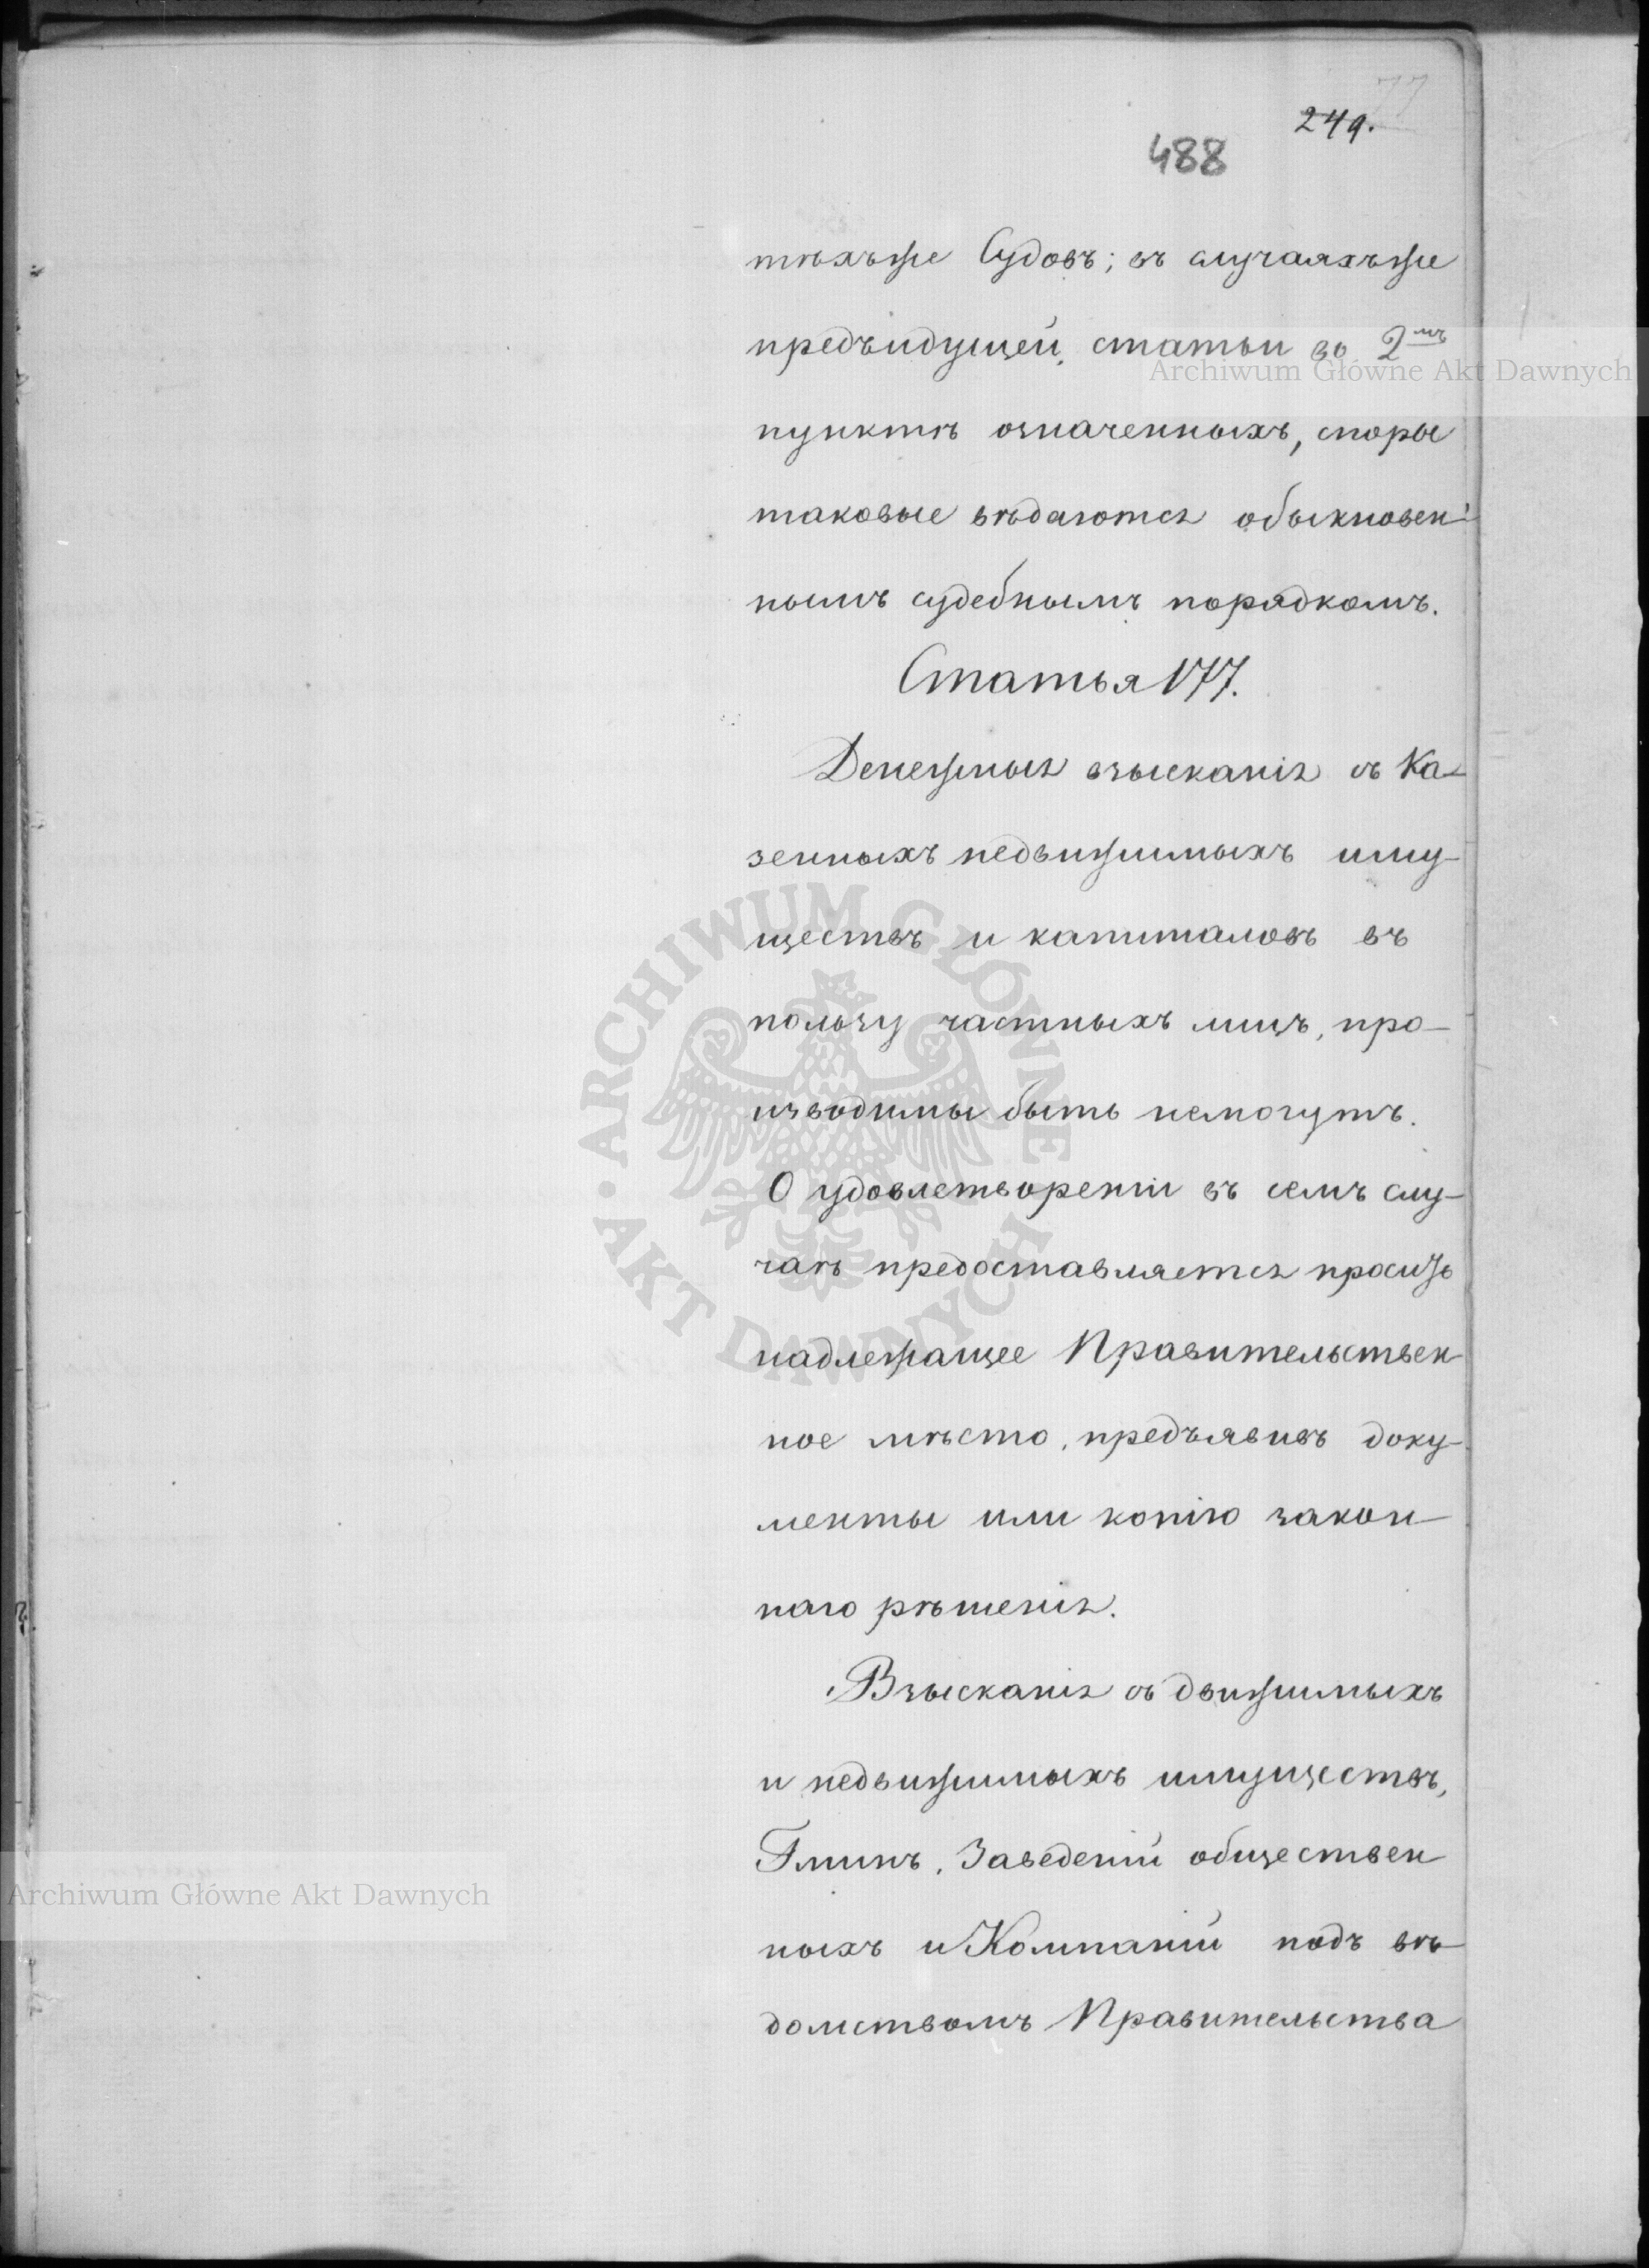 77
249.
488
тѣхъже Судовъ; въ случаяхъже
предъидущей статьи во 2мъ
пунктѣ означенныхъ, споры
таковые вѣдаются обыкновен-
нымъ судебнымъ порядкомъ.
Статья 177.
Денежныя взысканія съ Ка-
зенныхъ недвижимыхъ иму-
ществъ и капиталовъ въ
пользу частныхъ лицъ, про-
изводимы быть немогутъ.
О удовлетвореніи въ семъ слу-
чаѣ предоставляется просить
надлежащее Правительствен-
ное мѣсто, предъявивъ доку-
менты или копію закон-
наго рѣшенія.
Взысканія съ движимыхъ
и недвижимыхъ имуществъ,
Гминъ, Заведеній обществен
ныхъ и Компаній подъ вѣ-
домствомъ Правительства
Archiwum Główne Akt Dawnych
ARCHIWUM GŁÓWNE AKT DAWNYCH
Archiwum Główne Akt Dawnych